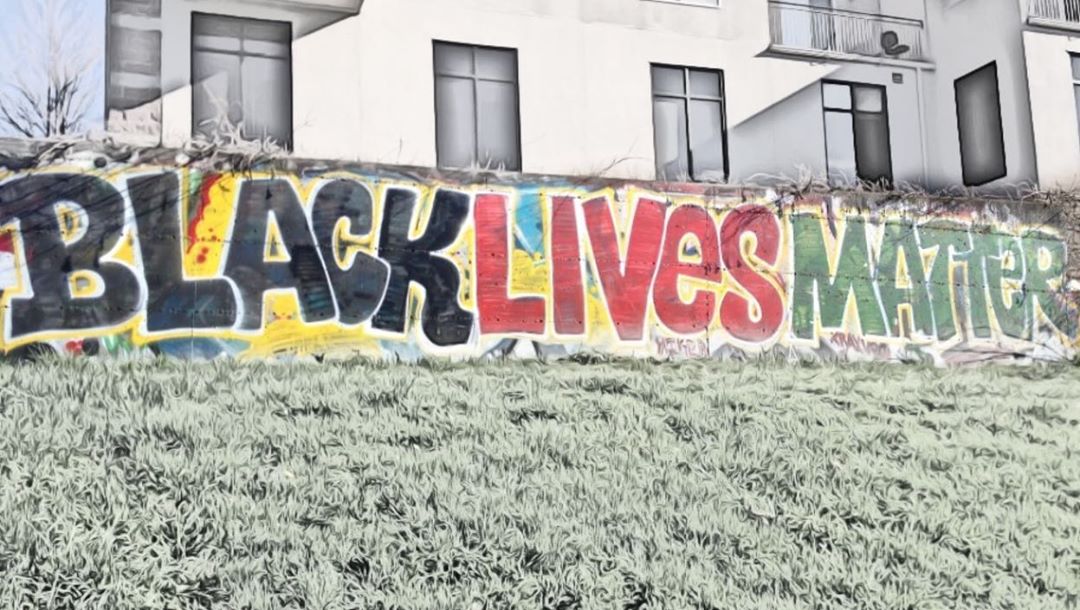 BLACK LIVES MATTER